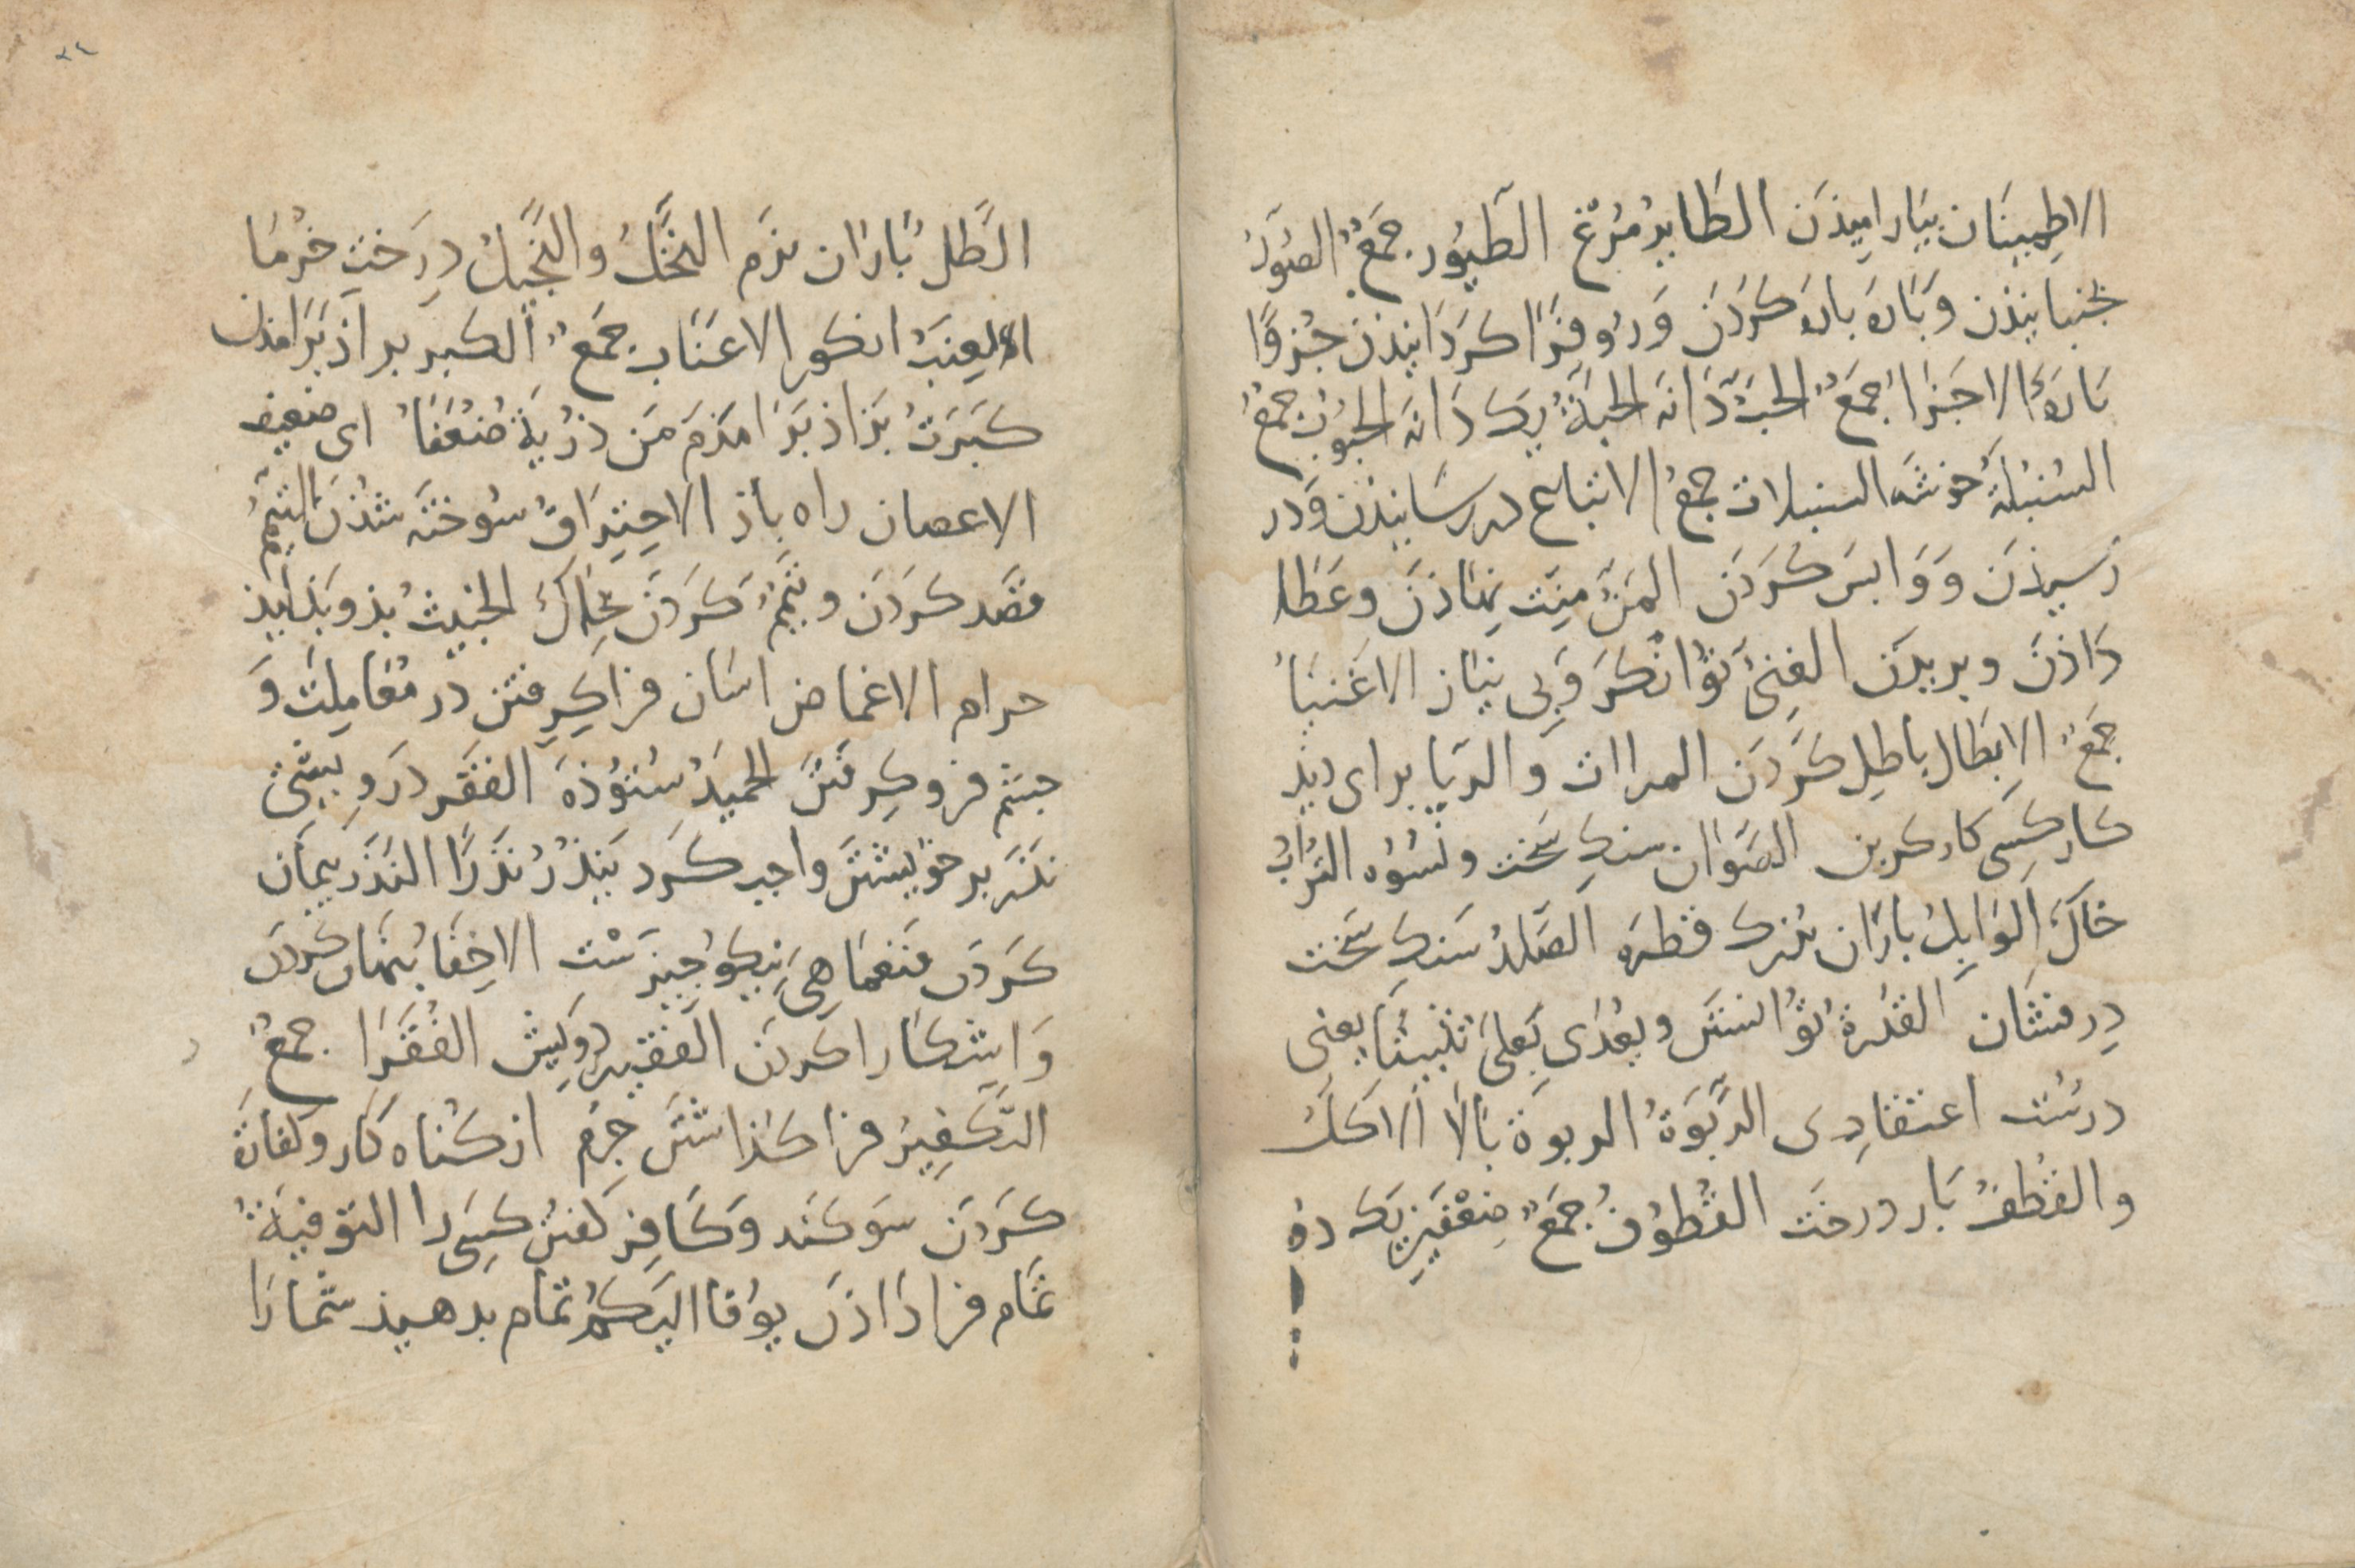 الاطمینان بیارامیذن الطایر مرغ الطیور جمع الصور
بجنبانیذن و باره باره کردن و روی فرا کردانیذن جزوًا
باره الاجزا جمع الحبّ دانه الحبة یک دانه الحبوب جمع
السنبلة خوشه السنبلات جمع الاتباع در رسانیذن و در
رسیذن و وابس کردن المنّ منت نهاذن و عطا
داذن و بریدن الغنی توانکر و بی نیاز الاغنیا
جمع الابطال باطل کردن المراات و الریا برای دید
کار کسی کار کردن الصفوان سنک سخت و نسوه التراب
خاک الوابل باران بزرک قطره الصلد سنک سخت
درفشان القدرة توانستن و یعدی بعلی تثبیتا یعنی
درست اعتقادی الرَّبوة الربوة بالا الاکل
و القطف بار درخت القطوف جمع ضعفین یک دو
۲۴
الطل باران نرم النخل و النخیل درخت خرما
العنب انکور الاعناب جمع الکبر براذ برامذن
کبرت بزاذ برامذم من ذریة ضعفا ای ضعیف
الاعصار راه باذ الاحتراق سوخته شذن التیمم
قصد کردن و تیمم کردن بخاک الخبیث بذ و بلیذ
حرام الاغماض اسان فرا کرفتن در معاملت و
جشم فرو کرفتن الحمید ستوذه الفقر درویشی
نذر بر خویشتن واجب کرد ینذر نذرًا النذر بیمان
کردن فنعما هی نیکو جیزست الاخفا بنهان کردن
و اشکارا کردن الفقیر درویش الفقرا جمع
التکفیر فرا کذاشتن جرم از کناه کار و کفارة
کردن سوکند و کافر کفتن کسی را التوفیة
تمام فرا داذن یوف الیکم تمام بدهیذ شما را